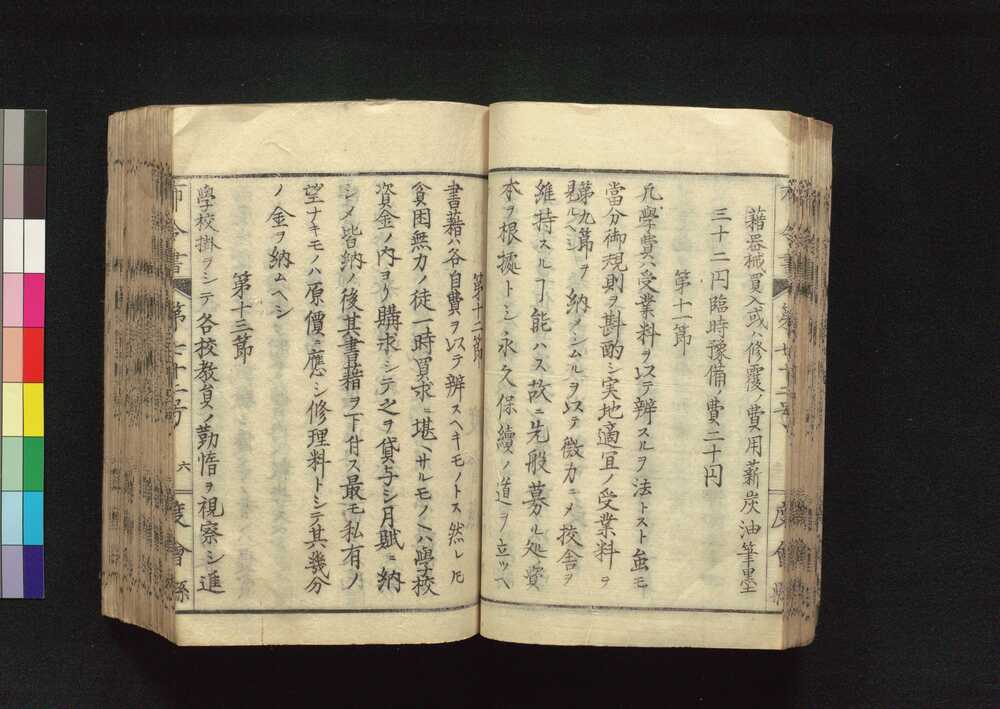 藉器械買入或ハ修覆ノ費用薪炭油筆墨
三十二円臨時豫備ノ費二十円
第十一節
凡學費ハ受業料ヲ以テ辨スルヲ法トスト虽モ
當分御規則ヲ斟酌シ実地適冝ノ受業料ヲ
第九節ヲ見ルヘシ納メシムルヲ以テ微力ニメ校舎ヲ
維持スルヿ能ハス故ニ先般募ル処ノ資
本ヲ根據トシ永久保續ノ道ヲ立ツヘ
第十二節
書藉ハ各自費ヲ以テ辨スヘキモノトス然レ𪜈
貧困無力ノ徒一時買求ニ堪ヘサルモノハ學校
資金ノ内ヨリ購求シテ之ヲ貸与シ月賦ニ納
シメ皆納ノ後其書藉ヲ下付ス最モ私有ノ
望ナキモノハ原價ニ應シ修理料トシテ其幾分
ノ金ヲ納ムヘシ
第十三節
學校掛ヲシテ各校教員ノ勤惰ヲ視察シ進
布令書 第七十二号 六 度會縣